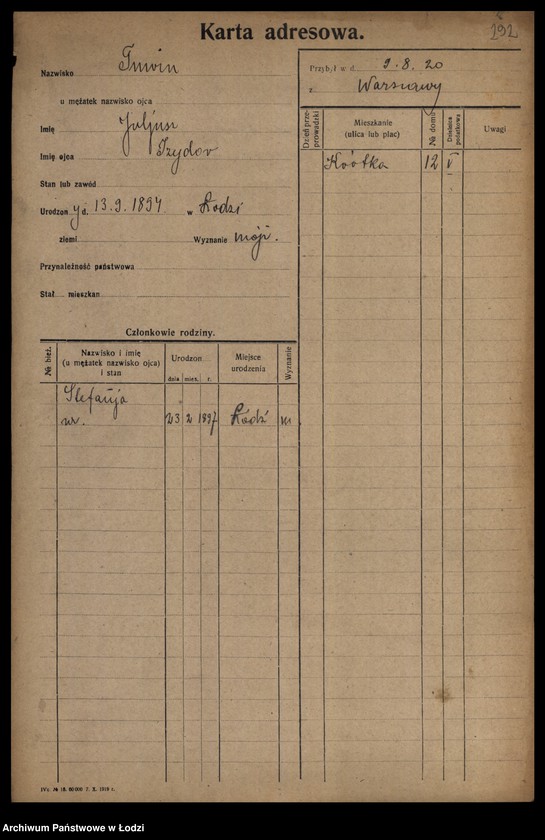 192
Karta adresowa.
Nazwisko Tuwin
u mężatek nazwisko ojca
Imię Juljusz
Imię ojca Izydor
Stan lub zawód
Urodzony d. 13.9.1894 w Łodzi
ziemi Wyznanie mojż.
Przynależność państwowa
Stał. mieszkan.
Przybył w d. 9.8.20
z Warszawy
Dzień przeprowadzki
Mieszkanie
(ulica lub plac)
№ domu
Dzielnica podatkowa
Uwagi
Krótka 12 V
Członkowie rodziny.
№ bież.
Nazwisko i imię
(u mężatek nazwisko ojca)
i stan
Urodzon
dnia mies. r.
Miejsce
urodzenia
Wyznanie
Stefanja
23 2 1897 Łódź m
IVc № 18. 60000 7. X. 1919 r.
Archiwum Państwowe w Łodzi